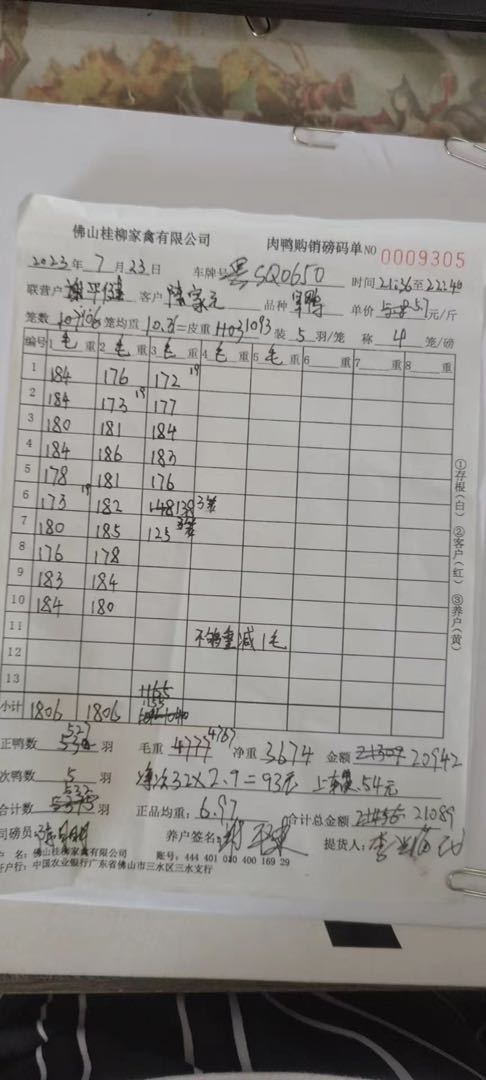 佛山桂柳家禽有限公司 肉鸭购销磅码单 NO 0009305
2023年 7月23日 车牌号 SQ0650 时间 21:36至22:40
联营户 客户 陈家元 品种 单价 57 元/斤
笼数 106 笼均重 10.31=皮重 1093 装 5 羽/笼 称 4 笼/磅
编号 1毛重 2毛重 3毛重 4毛重 5毛重 6重 7重 8重
1 184 176 172 19
2 184 173 19 177
3 180 181 184
4 184 186 183
5 178 181 176
6 173 19 182 138 3笼
7 180 185 125
8 176 178
9 183 184
10 184 180
11 不够重减1毛
12
13
小计 1806 1806 1155
正鸭数 527 羽 毛重 4767 净重 3674 金额 20942
次鸭数 5 羽 净次32×2.9=93元 上车费:54元
合计数 532 羽 正品均重:6.97 合计总金额 21089
司磅员: 养户签名: 提货人:
户 名: 佛山桂柳家禽有限公司 账号: 444 401 040 400 169 29
开户行: 中国农业银行广东省佛山市三水区三水支行
①存根(白) ②客户(红) ③养户(黄)